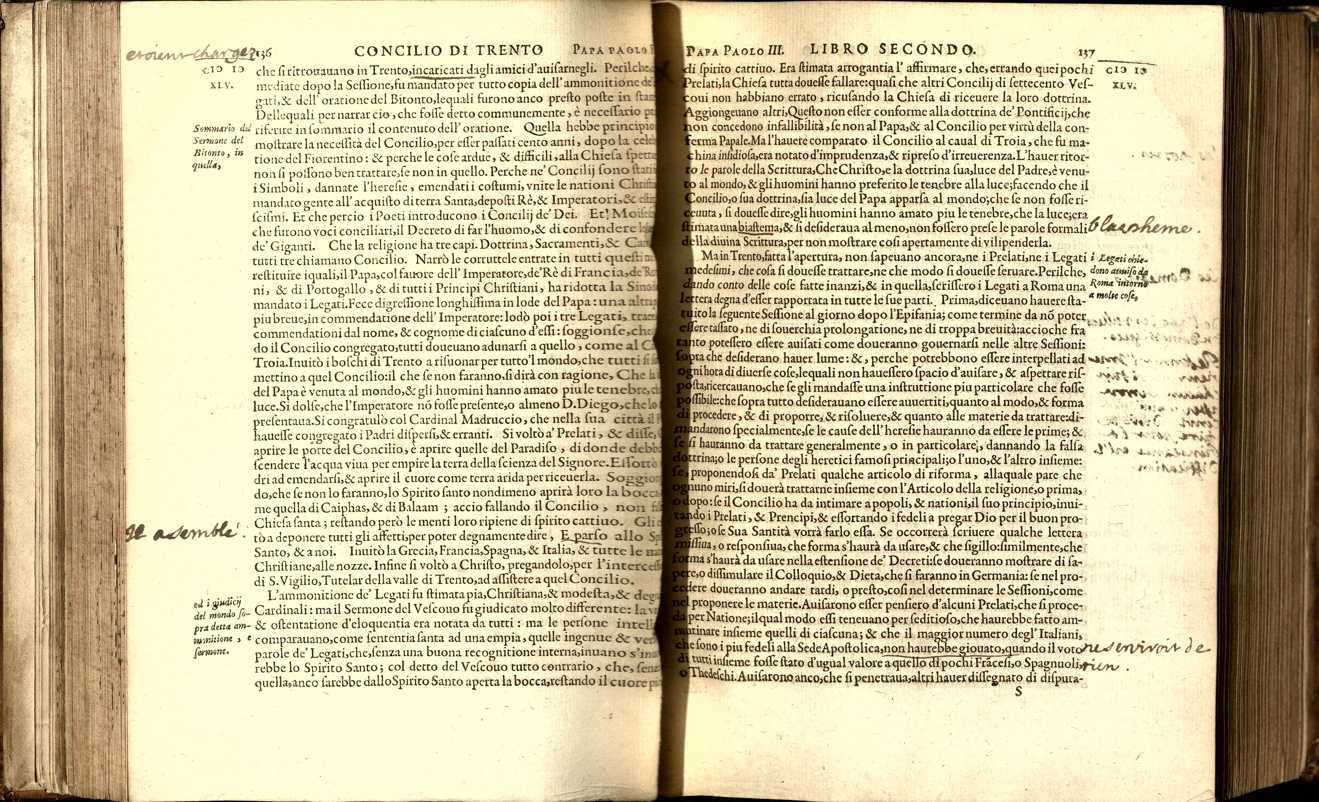 etoient chargez
136 CONCILIO DI TRENTO PAPA PAOLO
CIↃ IↃ
XLV.
che si ritrouauano in Trento, incaricati dagli amici d'auisarnegli. Perilche
mediate dopo la Sessione, fu mandato per tutto copia dell'ammonitione de'
gati, & dell' oratione del Bitonto, lequali furono anco presto poste in
Dellequali per narrar cio, che fosse detto communemente, è necessario
Sommario del
Sermone del
Bitonto, in
quella,
riferire in sommario il contenuto dell' oratione. Quella hebbe principio
mostrare la necessità del Concilio, per esser passati cento anni, dopo la
tione del Fiorentino: & perche le cose ardue, & difficili, alla Chiesa
non si possono ben trattare, se non in quello. Perche ne' Concilij sono
i Simboli, dannate l'heresie, emendati i costumi, vnite le nationi
mandato gente all' acquisto di terra Santa, deposti Rè, & Imperatori, &
scismi. Et che percio i Poeti introducono i Concilij de' Dei. Et
che furono voci conciliari, il Decreto di far l'huomo, & di confondere
de' Giganti. Che la religione ha tre capi. Dottrina, Sacramenti, &
tutti tre chiamano Concilio. Narrò le corruttele entrate in tutti questi
restituire iquali, il Papa, col fauore dell' Imperatore, de' Rè di Francia, de'
ni, & di Portogallo, & di tutti i Principi Christiani, ha ridotta la
mandato i Legati. Fece digressione longhissima in lode del Papa: una altra
piu breue, in commendatione dell' Imperatore: lodò poi i tre Legati,
commendationi dal nome, & cognome di ciascuno d'essi: soggionse, che
do il Concilio congregato, tutti doueuano adunarsi a quello, come al
Troia. Inuitò i boschi di Trento a risuonar per tutto'l mondo, che tutti si
mettino a quel Concilio: il che se non faranno, si dirà con ragione, Che la
del Papa è venuta al mondo, & gli huomini hanno amato piu le tenebre,
luce. Si dolse, che l'Imperatore nó fosse presente, o almeno D. Diego, che lo
presentaua. Si congratulò col Cardinal Madruccio, che nella sua città il
hauesse congregato i Padri dispersi, & erranti. Si voltò a' Prelati, & disse,
aprire le porte del Concilio, è aprire quelle del Paradiso, di donde
scendere l'acqua viua per empire la terra della scienza del Signore. Essortò
dri ad emendarsi, & aprire il cuore come terra arida per riceuerla.
do, che se non lo faranno, lo Spirito santo nondimeno aprirà loro la bocca
me quella di Caiphas, & di Balaam; accio fallando il Concilio, non
Chiesa santa; restando però le menti loro ripiene di spirito cattiuo.
tò a deponere tutti gli affetti, per poter degnamente dire, E parso allo
Santo, & a noi. Inuitò la Grecia, Francia, Spagna, & Italia, & tutte le
Christiane, alle nozze. Infine si voltò a Christo, pregandolo, per
di S. Vigilio, Tutelar della valle di Trento, ad assistere a quel Concilio.
ed i giudicij
del mondo so-
pra detta am-
monitione, e
sermone.
L'ammonitione de' Legati fu stimata pia, Christiana, & modesta, &
Cardinali: ma il Sermone del Vescouo fu giudicato molto differente: la
& ostentatione d'eloquentia era notata da tutti: ma le persone
comparauano, come sententia santa ad una empia, quelle ingenue &
parole de' Legati, che, senza una buona recognitione interna, inuano
rebbe lo Spirito Santo; col detto del Vescouo tutto contrario, che,
quella, anco sarebbe dallo Spirito Santo aperta la bocca, restando il cuore
PAPA PAOLO III. LIBRO SECONDO. 137
CIↃ IↃ
XLV.
di spirito cattiuo. Era stimata arrogantia l' affirmare, che, errando quei pochi
Prelati, la Chiesa tutta douesse fallare: quasi che altri Concilij di settecento Ves-
coui non habbiano errato, ricusando la Chiesa di riceuere la loro dottrina.
Aggiongeuano altri, Questo non esser conforme alla dottrina de' Pontificij, che
non concedono infallibilità, se non al Papa, & al Concilio per virtù della con-
ferma Papale. Ma l'hauere comparato il Concilio al caual di Troia, che fu ma-
china insidiosa, era notato d'imprudenza, & ripreso d'irreuerenza. L'hauer ritor-
to le parole della Scrittura, Che Christo, e la dottrina sua, luce del Padre, è venu-
to al mondo, & gli huomini hanno preferito le tenebre alla luce; facendo che il
Concilio, o sua dottrina, sia luce del Papa apparsa al mondo; che se non fosse ri-
ceuuta, si douesse dire, gli huomini hanno amato piu le tenebre, che la luce; era
stimata una biastema, & si desideraua al meno, non fossero prese le parole formali
della diuina Scrittura, per non mostrare cosi apertamente di vilipenderla.
blaspheme.
Ma in Trento, fatta l'apertura, non sapeuano ancora, ne i Prelati, ne i Legati
medesimi, che cosa si douesse trattare, ne che modo si douesse seruare. Perilche,
dando conto delle cose fatte inanzi, & in quella, scrissero i Legati a Roma una
lettera degna d'esser rapportata in tutte le sue parti. Prima, diceuano hauere sta-
i Legati chie-
dono auuiso da
Roma intorno
a molte cose,
tuito la seguente Sessione al giorno dopo l'Epifania; come termine da nó poter
essere tassato, ne di souerchia prolongatione, ne di troppa breuità: accioche fra
tanto potessero essere auisati come doueranno gouernarsi nelle altre Sessioni:
sopra che desiderano hauer lume: &, perche potrebbono essere interpellati ad
ogni hora di diuerse cose, lequali non hauessero spacio d'auisare, & aspettare ris-
posta, ricercauano, che se gli mandasse una instruttione piu particolare che fosse
possibile: che sopra tutto desiderauano essere auuertiti, quanto al modo, & forma
di procedere, & di proporre, & risoluere, & quanto alle materie da trattare: di-
mandarono specialmente, se le cause dell' heresie hauranno da essere le prime; &
se si hauranno da trattare generalmente, o in particolare, dannando la falsa
dottrina; o le persone degli heretici famosi principali; o l'uno, & l'altro insieme:
se, proponendosi da' Prelati qualche articolo di riforma, allaquale pare che
ognuno miri, si douerà trattarne insieme con l'Articolo della religione, o prima,
o dopo: se il Concilio ha da intimare a popoli, & nationi, il suo principio, inui-
tando i Prelati, & Prencipi, & essortando i fedeli a pregar Dio per il buon pro-
gresso; o se Sua Santità vorrà farlo essa. Se occorrerà scriuere qualche lettera
missiua, o responsiua, che forma s'haurà da usare, & che sigillo: similmente, che
forma s'haurà da usare nella estensione de' Decreti: se doueranno mostrare di sa-
pere, o dissimulare il Colloquio, & Dieta, che si faranno in Germania: se nel pro-
cedere doueranno andare tardi, o presto, cosi nel determinare le Sessioni, come
nel proponere le materie. Auisarono esser pensiero d'alcuni Prelati, che si proce-
da per Natione; ilqual modo essi teneuano per seditioso, che haurebbe fatto am-
mutinare insieme quelli di ciascuna; & che il maggior numero degl' Italiani,
che sono i piu fedeli alla Sede Apostolica, non haurebbe giouato, quando il voto
di tutti insieme fosse stato d'ugual valore a quello di pochi Frácesi, o Spagnuoli,
o Thedeschi. Auisarono anco, che si penetraua, altri hauer dissegnato di disputa-
ne serviroit de
rien.
S